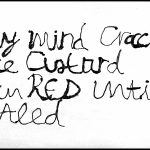 my mind Crac
Custard
RED Unti
Aled